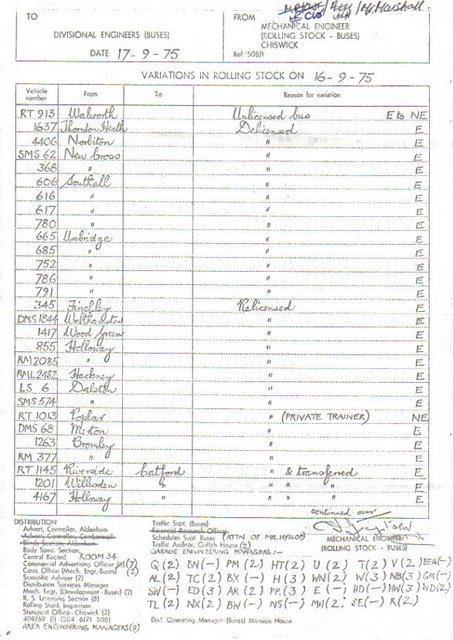 TO
DIVISIONAL ENGINEERS (BUSES)
DATE 17-9-75
FROM
MECHANICAL ENGINEER
(ROLLING STOCK - BUSES)
CHISWICK
Ref. 508/1
VARIATIONS IN ROLLING STOCK ON 16-9-75
Vehicle number From To Reason for variation
RT 913 Walworth Unlicensed bus E to NE
1637 Thornton Heath Delicensed E
4406 Norbiton " E
SMS 62 New Cross " E
368 " " E
606 Southall " E
616 " " E
617 " " E
780 " " E
665 Uxbridge " E
685 " " E
752 " " E
786 " " E
791 " " E
345 Finchley Relicensed E
DMS 1844 Walthamstow " E
1417 Wood Green " E
855 Holloway " E
RM 2085 " " E
RML 2482 Hackney " E
LS 6 Dalston " E
SMS 574 " " E
RT 1013 Poplar " (PRIVATE TRAINER) NE
DMS 68 Merton " E
1263 Bromley " E
RM 377 " " E
RT 1145 Riverside Catford " & transferred E
1201 Willesden " " " " E
4167 Holloway " " " " E
continued over
DISTRIBUTION
Advert. Controller, Aldenham
Advert. Controller, Camberwell
Body Spec. Section
Central Record ROOM 34
Commercial Advertising Officer
Costs Office (Mech. Engr.-Buses) (2)
Scientific Adviser (2)
Distribution Services Manager
Mech. Engr. (Development - Buses) (2)
R. S. Licensing Section (8)
Rolling Stock Inspection
Stationed Office - Chiswick (2)
AREA ENGINEERING MANAGERS (9)
Traffic Supt. (Buses)
Financial Research Officer
Schedules Supt. Buses (ATTN OF MR. HYSLOP)
Traffic Auditor, Griffith House (2)
MECHANICAL ENGINEER
(ROLLING STOCK - BUSES)
GARAGE ENGINEERING MANAGERS:-
Q (2) BN (-) PM (2) HT (2) U (2) T (2) V (2) BEA (-)
AL (2) TC (2) BX (-) H (3) WN (2) W (3) NB (3) GM (-)
SW (-) ED (3) AR (2) PR (3) E (-) HD (-) HW (3) WD (2)
TL (2) NX (2) BW (-) NS (-) MH (2) SE (-) R (2)
Divl. Operating Manager (Buses) Mansion House